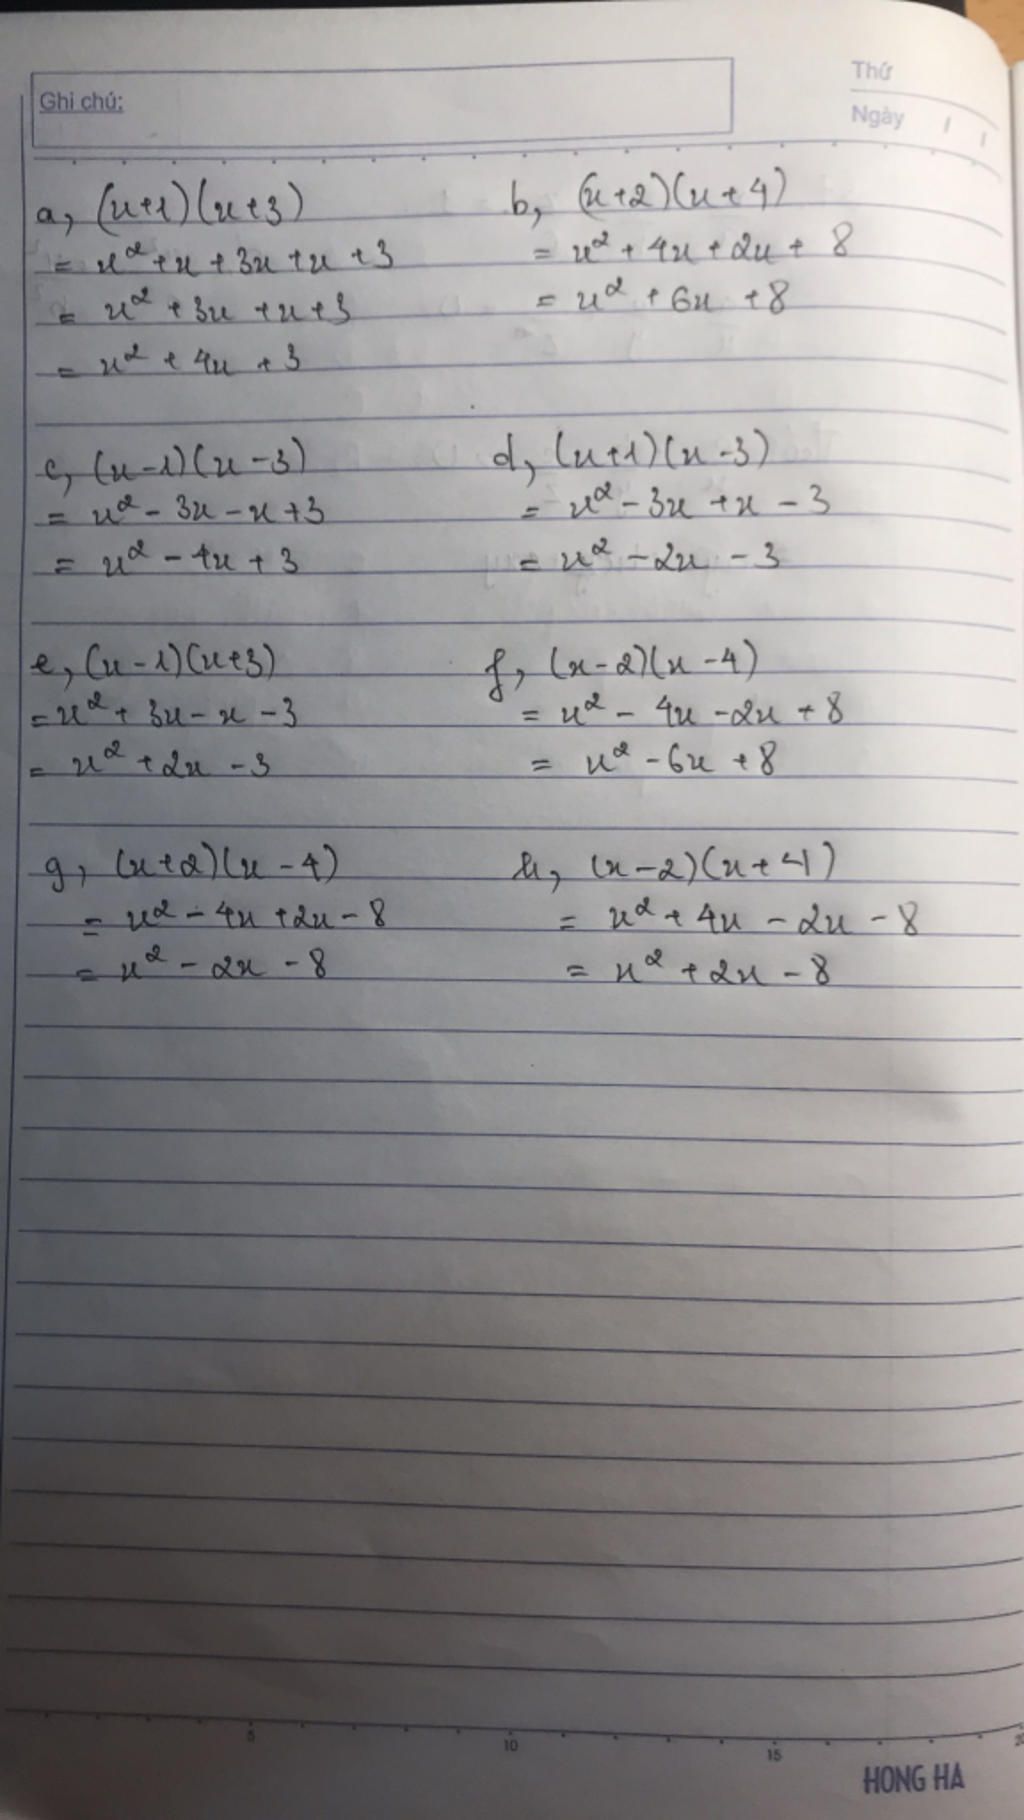 Ghi chú:
Thứ
Ngày / /
a, (x+1)(x+3)
= x² + x + 3x + x + 3
= x² + 3x + x + 3
= x² + 4x + 3
b, (x+2)(x+4)
= x² + 4x + 2x + 8
= x² + 6x + 8
c, (x-1)(x-3)
= x² - 3x - x + 3
= x² - 4x + 3
d, (x+1)(x-3)
= x² - 3x + x - 3
= x² - 2x - 3
e, (x-1)(x+3)
= x² + 3x - x - 3
= x² + 2x - 3
f, (x-2)(x-4)
= x² - 4x - 2x + 8
= x² - 6x + 8
g, (x+2)(x-4)
= x² - 4x + 2x - 8
= x² - 2x - 8
h, (x-2)(x+4)
= x² + 4x - 2x - 8
= x² + 2x - 8
5 10 15
HONG HA